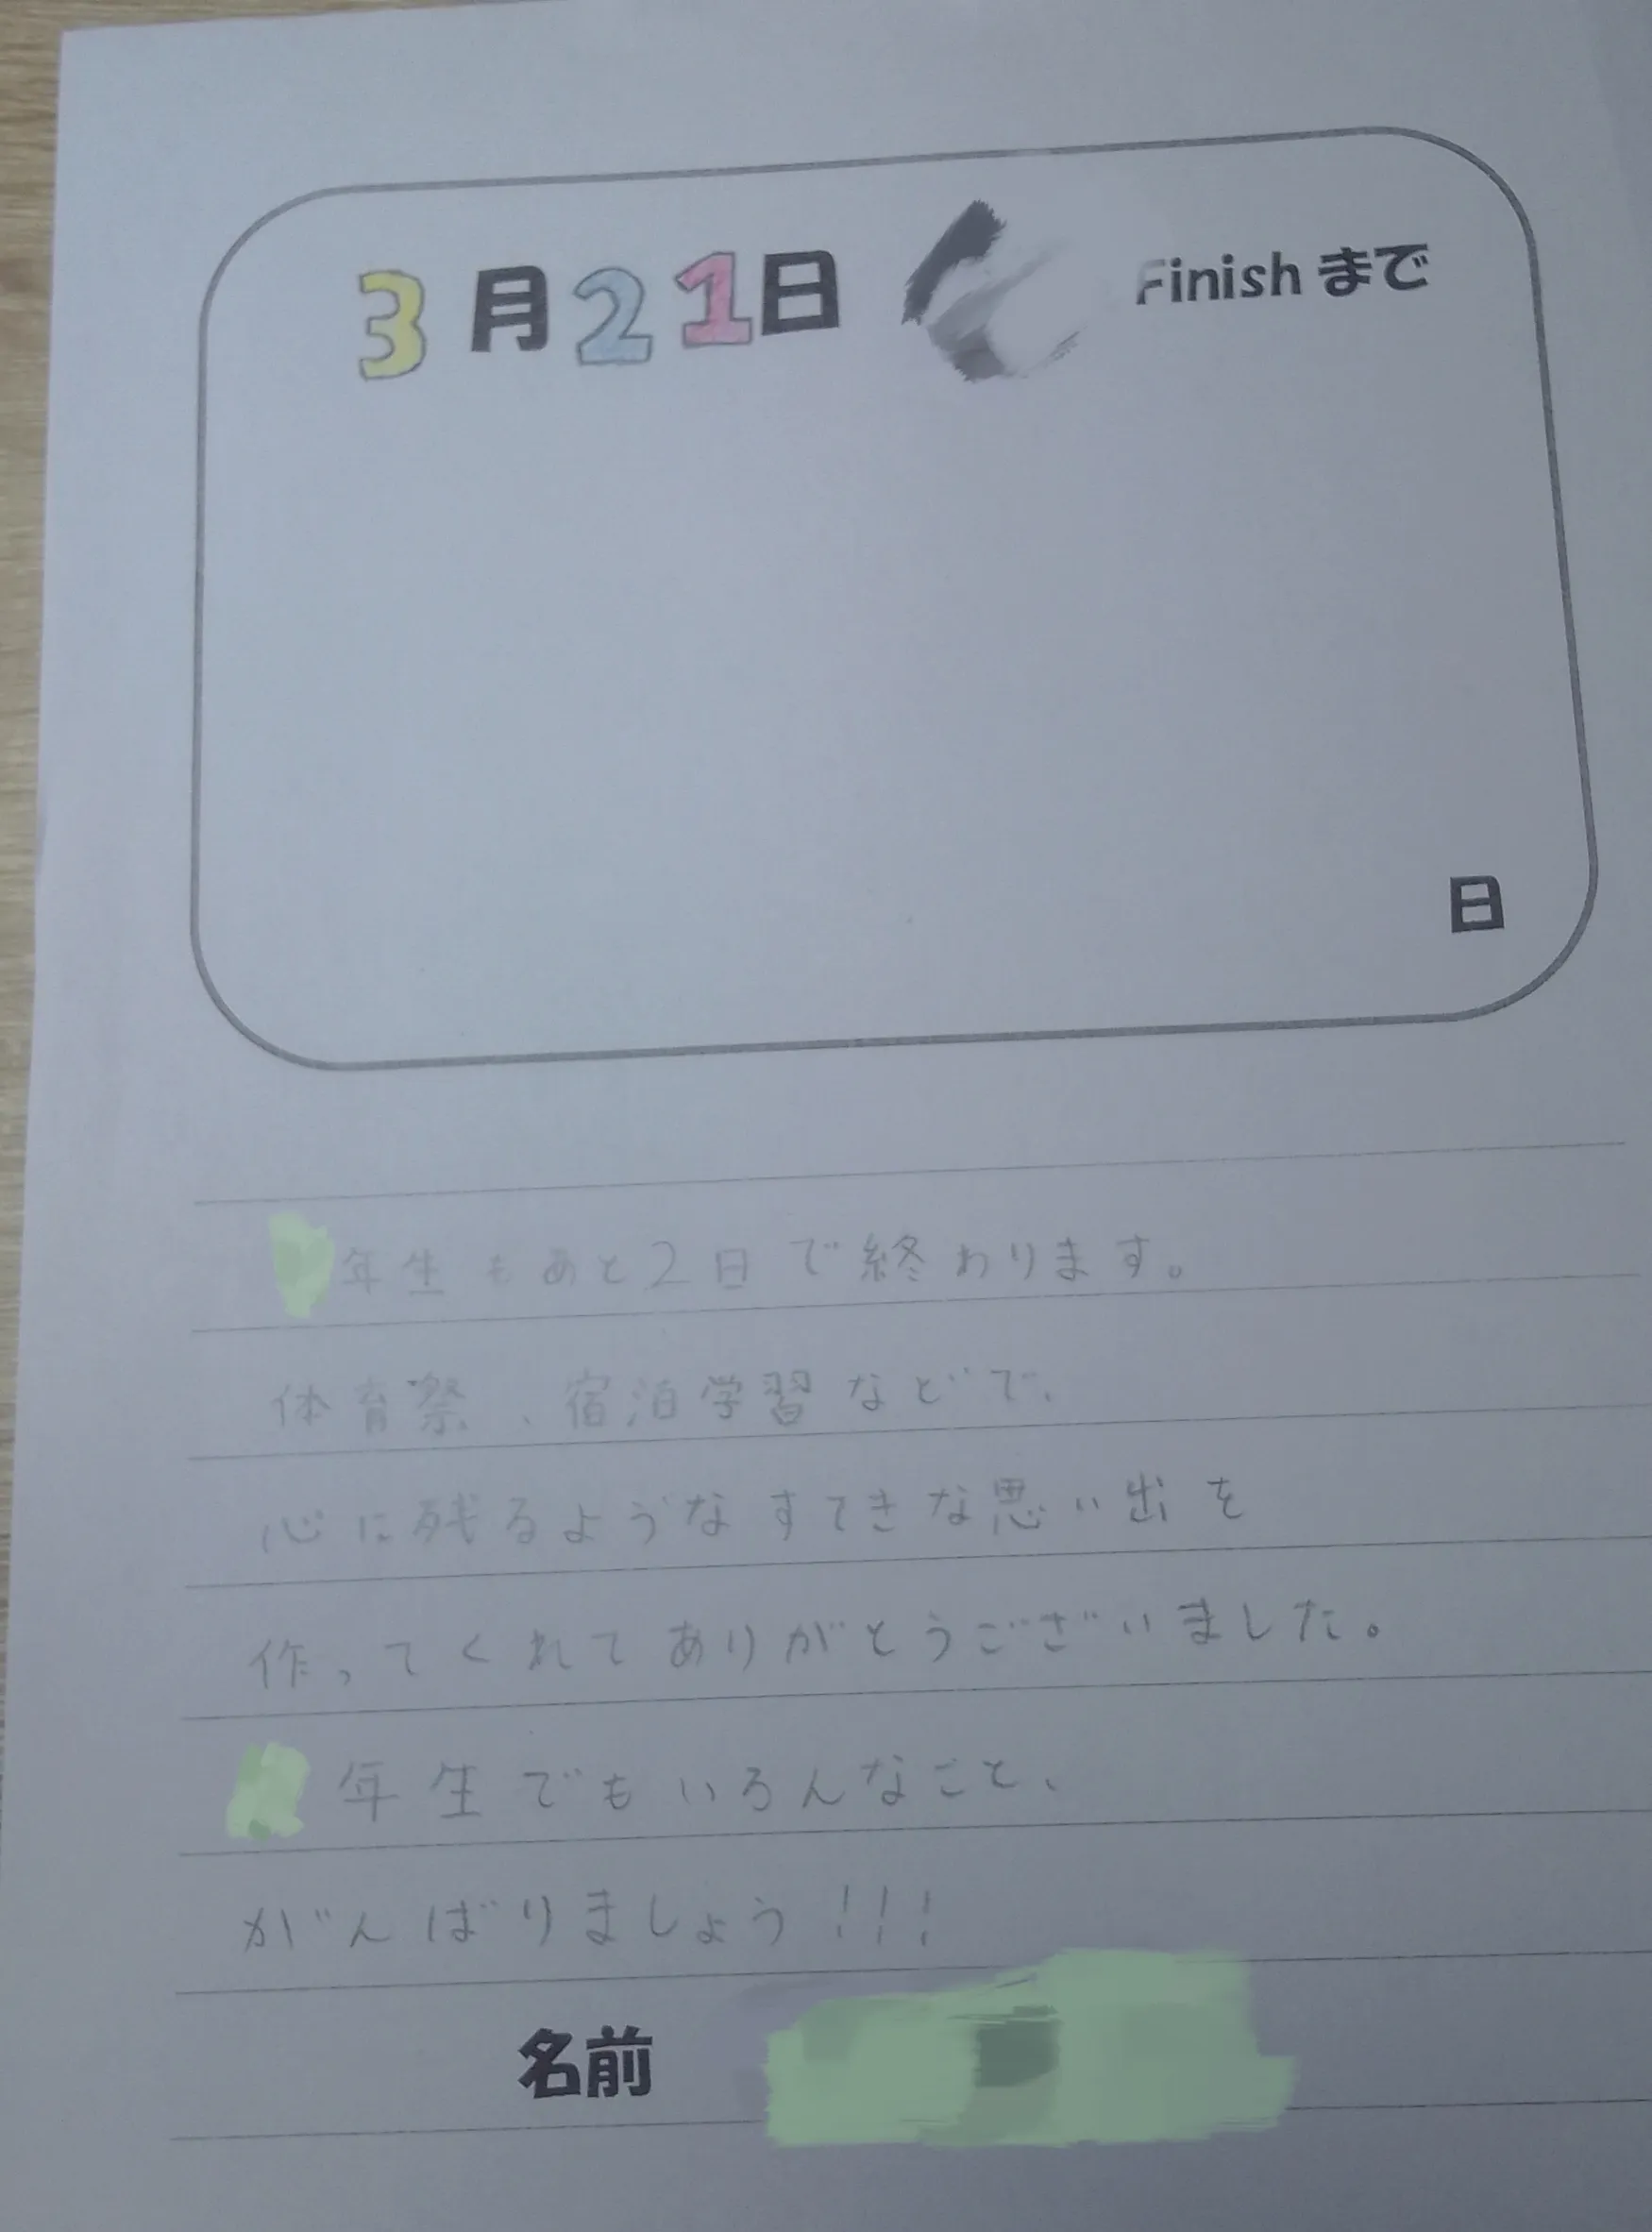 3月21日 Finishまで
日
年生もあと2日で終わります。
体育祭、宿泊学習などで、
心に残るようなすてきな思い出を
作ってくれてありがとうございました。
年生でもいろんなこと、
がんばりましょう!!!
名前